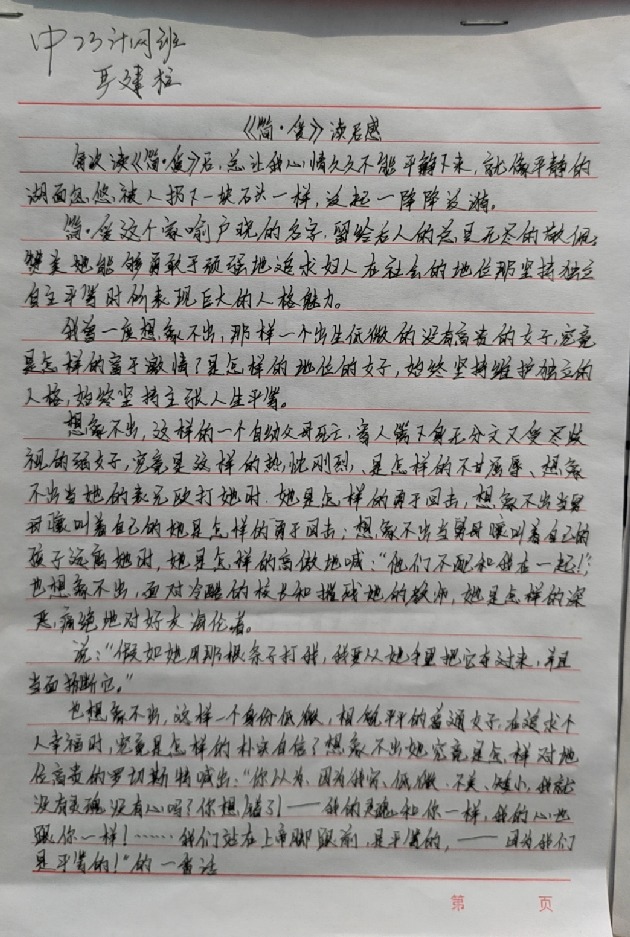 中23计网班
王建柱
《简·爱》读后感
每次读《简·爱》后,总让我心情久久不能平静下来,就像平静的
湖面忽然被人扔下一块石头一样,泛起一阵阵波漪。
简·爱这个家喻户晓的名字,留给后人的总是无尽的敬佩,
锺是她能够勇敢于顽强地追求妇人在社会的地位那坚持独立
自主平等时所表现巨大的人格魅力。
我曾一度想象不出,那样一个出生低微的没有高贵的女子,究竟
是怎样的富于激情?是怎样的地位的女子,始终坚持维护独立的
人格,始终坚持主张人生平等。
想象不出,这样的一个自幼父母死亡,寄人篱下身无分文又受尽歧
视的弱女子,究竟是这样的热忱刚烈、是怎样的不甘屈辱、想象
不出当她的表兄殴打她时,她是怎样的勇于回击,想象不出当舅
母嚷叫着自己的她是怎样的勇于回击;想象不出当舅母嚷叫着自己的
孩子远离她时,她是怎样的高傲地喊:“他们不配和我在一起!”,
也想象不出,面对冷酷的校长和摧残她的教师,她是怎样的深
恶痛绝地对好友海伦着。
说:“假如她用那根条子打我,我要从她手里把它夺过来,并且
当面折断它。”
也想象不出,这样一个身份低微,相貌平平的普通女子,在追求个
人幸福时,究竟是怎样的朴实自信?想象不出她究竟是怎样对地
位高贵的罗切斯特喊出:“你以为,因为我穷、低微、不美、矮小,我就
没有灵魂没有心吗?你想错了!——我的灵魂和你一样,我的心也
跟你一样!……我们站在上帝脚跟前,是平等的,——因为我们
是平等的!”的一番话
第 页